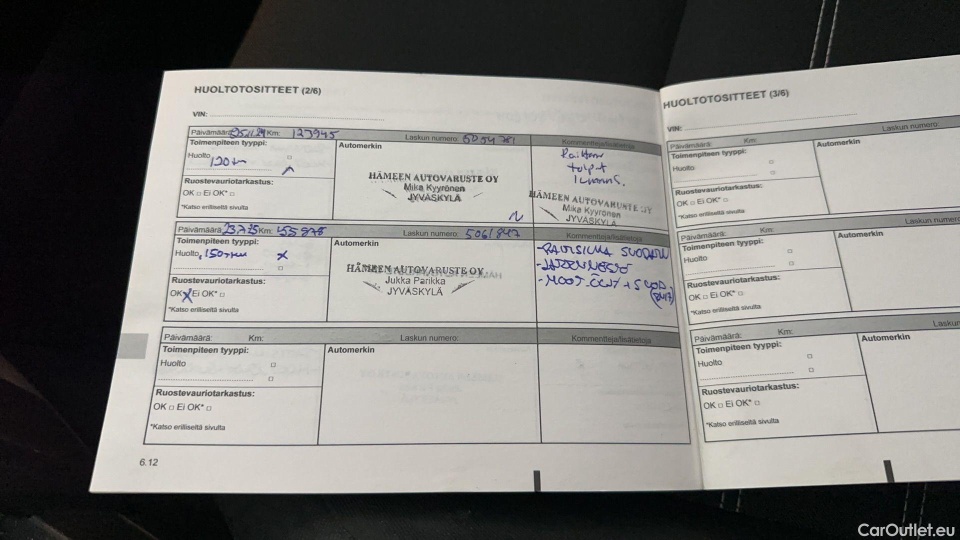 HUOLTOTOSITTEET (2/6)
VIN:
Päivämäärä: Km: 123945 Laskun numero: 5054781 Kommentteja/lisätietoja
Toimenpiteen tyyppi: Automerkin
Huolto
120
tulpat
HÄMEEN AUTOVARUSTE OY
Mika Kyyrönen
JYVÄSKYLÄ
HÄMEEN AUTOVARUSTE OY
Mika Kyyrönen
JYVÄSKYLÄ
Ruostevauriotarkastus:
OK □ Ei OK* □
*Katso erilliseltä sivulta
Päivämäärä: 23.7.25 Km: 155975 Laskun numero: 5061847 Kommentteja/lisätietoja
Toimenpiteen tyyppi: Automerkin
Huolto
HÄMEEN AUTOVARUSTE OY
Jukka Parikka
JYVÄSKYLÄ
Ruostevauriotarkastus:
OK X Ei OK* □
*Katso erilliseltä sivulta
Päivämäärä: Km: Laskun numero: Kommentteja/lisätietoja
Toimenpiteen tyyppi: Automerkin
Huolto □
Ruostevauriotarkastus:
OK □ Ei OK* □
*Katso erilliseltä sivulta
6.12
HUOLTOTOSITTEET (3/6)
VIN:
Päivämäärä: Km: Laskun numero
Toimenpiteen tyyppi: Automerkin
Huolto □
Ruostevauriotarkastus:
OK □ Ei OK* □
*Katso erilliseltä sivulta
Päivämäärä: Km: Laskun numero
Toimenpiteen tyyppi: Automerkin
Huolto □
Ruostevauriotarkastus:
OK □ Ei OK* □
*Katso erilliseltä sivulta
Päivämäärä: Km: Lasku
Toimenpiteen tyyppi: Automerkin
Huolto □
Ruostevauriotarkastus:
OK □ Ei OK* □
*Katso erilliseltä sivulta
CarOutlet.eu